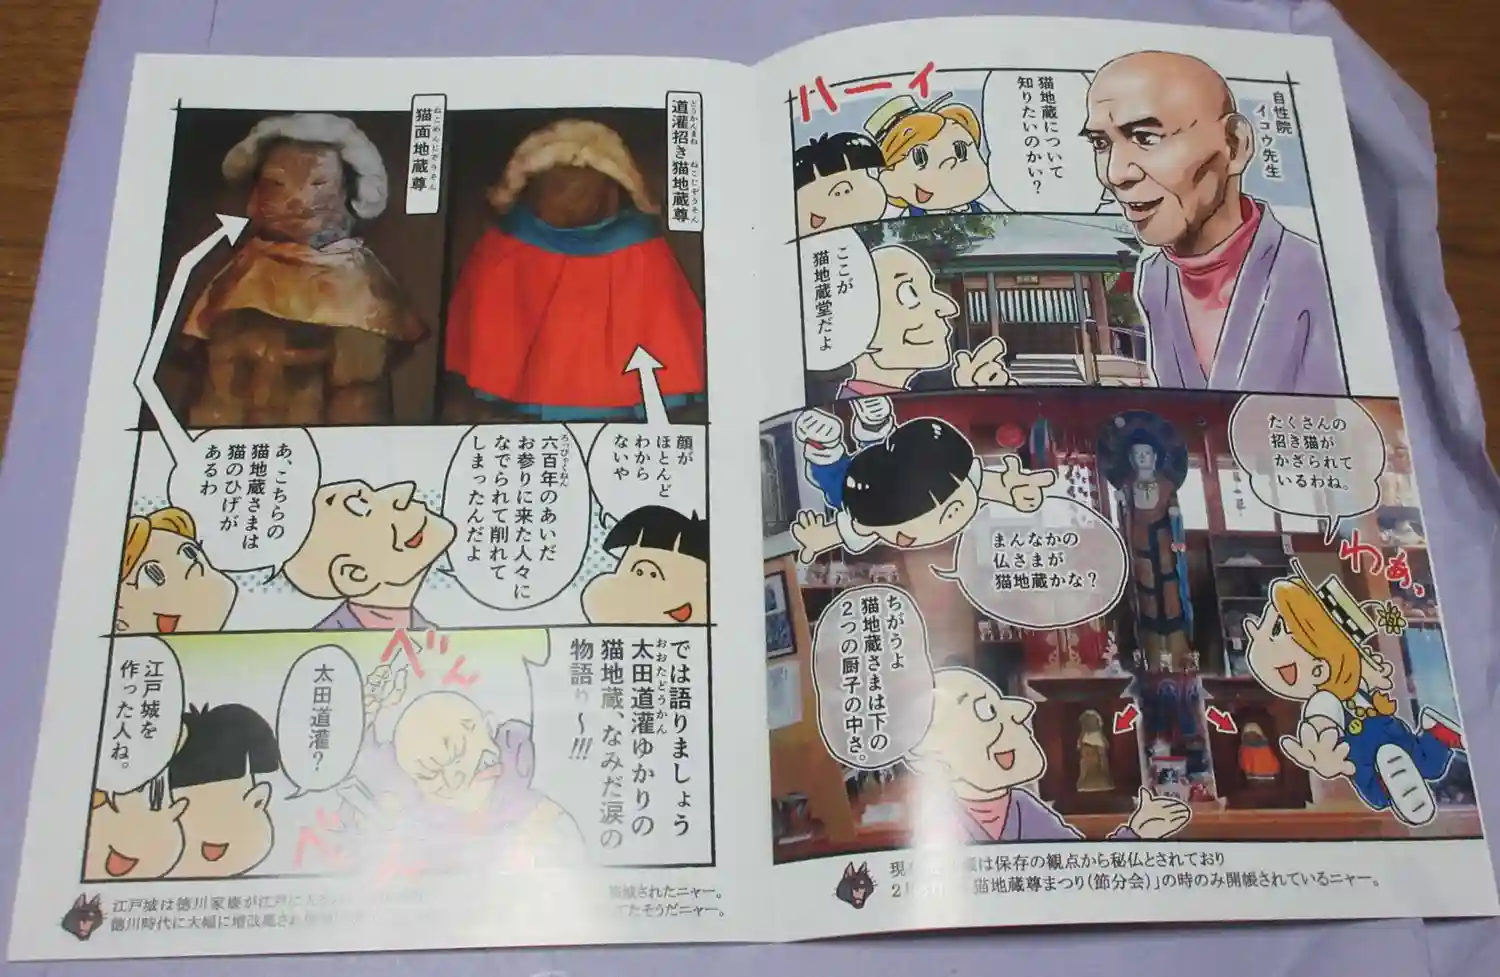 ハーイ
猫地蔵について
知りたいのかい？
自性院
イコウ先生
ここが
猫地蔵堂だよ
たくさんの
招き猫が
かざられて
いるわね。
まんなかの
仏さまが
猫地蔵かな？
わぁ。
ちがうよ
猫地蔵さまは下の
２つの厨子の中さ。
は保存の観点から秘仏とされており
猫地蔵尊まつり(節分会)」の時のみ開帳されているニャー。
道灌招き猫地蔵尊
どうかんまねねこじぞうそん
猫面地蔵尊
ねこめんじぞうそん
顔が
ほとんど
わから
ないや
六百年のあいだ
ろっぴゃくねん
お参りに来た人々に
なでられて削れて
しまったんだよ
あ、こちらの
猫地蔵さまは
猫のひげが
あるわ
では語りましょう
太田道灌ゆかりの
おおたどうかん
猫地蔵、なみだ涙の
物語り〜!!!
べん
太田道灌？
江戸城を
作った人ね。
べべん
江戸城は徳川家康が江戸に
築城されたニャー。
徳川時代に大幅に増改築され
てたそうだニャー。